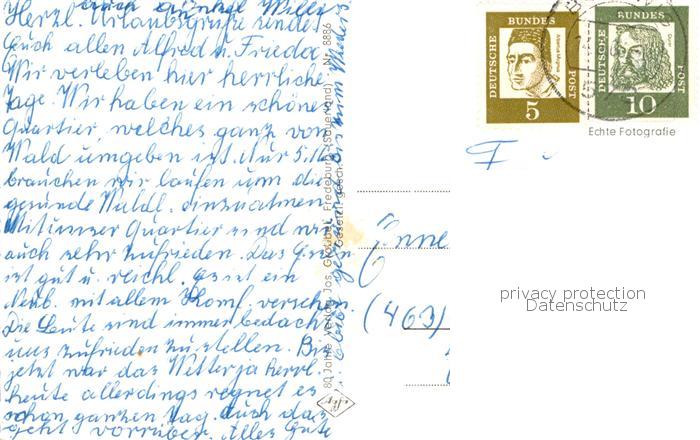 auch Onkel Willi
Herzl. Urlaubsgrüße sendet
Euch allen Alfred u. Frieda.
Wir verleben hier herrliche
Tage. Wir haben ein schönes
Quartier, welches ganz von
Wald umgeben ist. Nur 5 M.
brauchen wir laufen um die
gesunde Waldl. einzuatmen.
Mit unser Quartier sind wir
auch sehr zufrieden. Das Essen
ist gut u. reichl. es ist ein
Neub. mit allem Komf. versehen.
Die Leute sind immer bedacht
uns zufrieden zu stellen. Bis
jetzt war das Wetter ja herrl.
heute allerdings regnet es
schon ganzen Tag. Auch das
geht vorrüber. Alles Gute
80 Jahre Verlag Jos. Grobbel, Fredeburg (Sauerland) · Nr. 8886
Gesetzl. gesch.
DEUTSCHE BUNDES POST
5
DEUTSCHE BUNDES POST
10
Echte Fotografie
F
Enne
(463)
privacy protection
Datenschutz